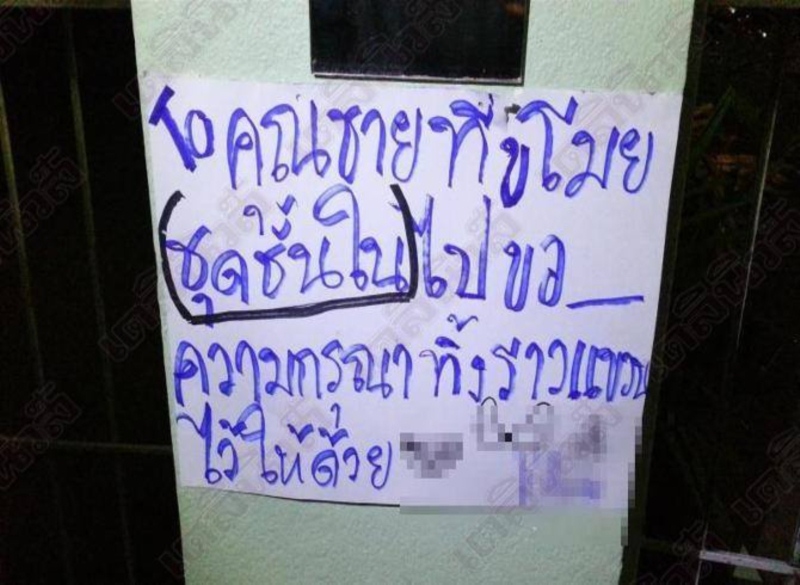 To คุณชายที่ขโมย
(ชุดชั้นใน)ไปขอ
ความกรุณาทิ้งราวแขวน
ไว้ให้ด้วย
เดลินิวส์